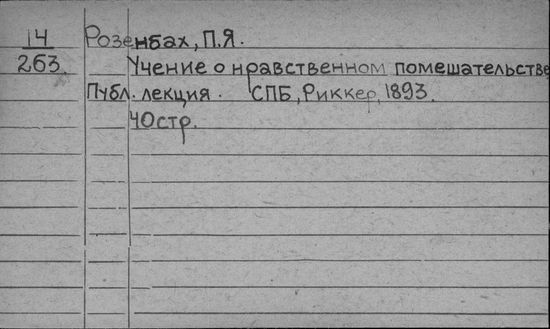 14 Розенбах, П.Я.
263 Учение о нравственном помешательстве
Публ. лекция. СПБ, Риккер, 1893.
40стр.